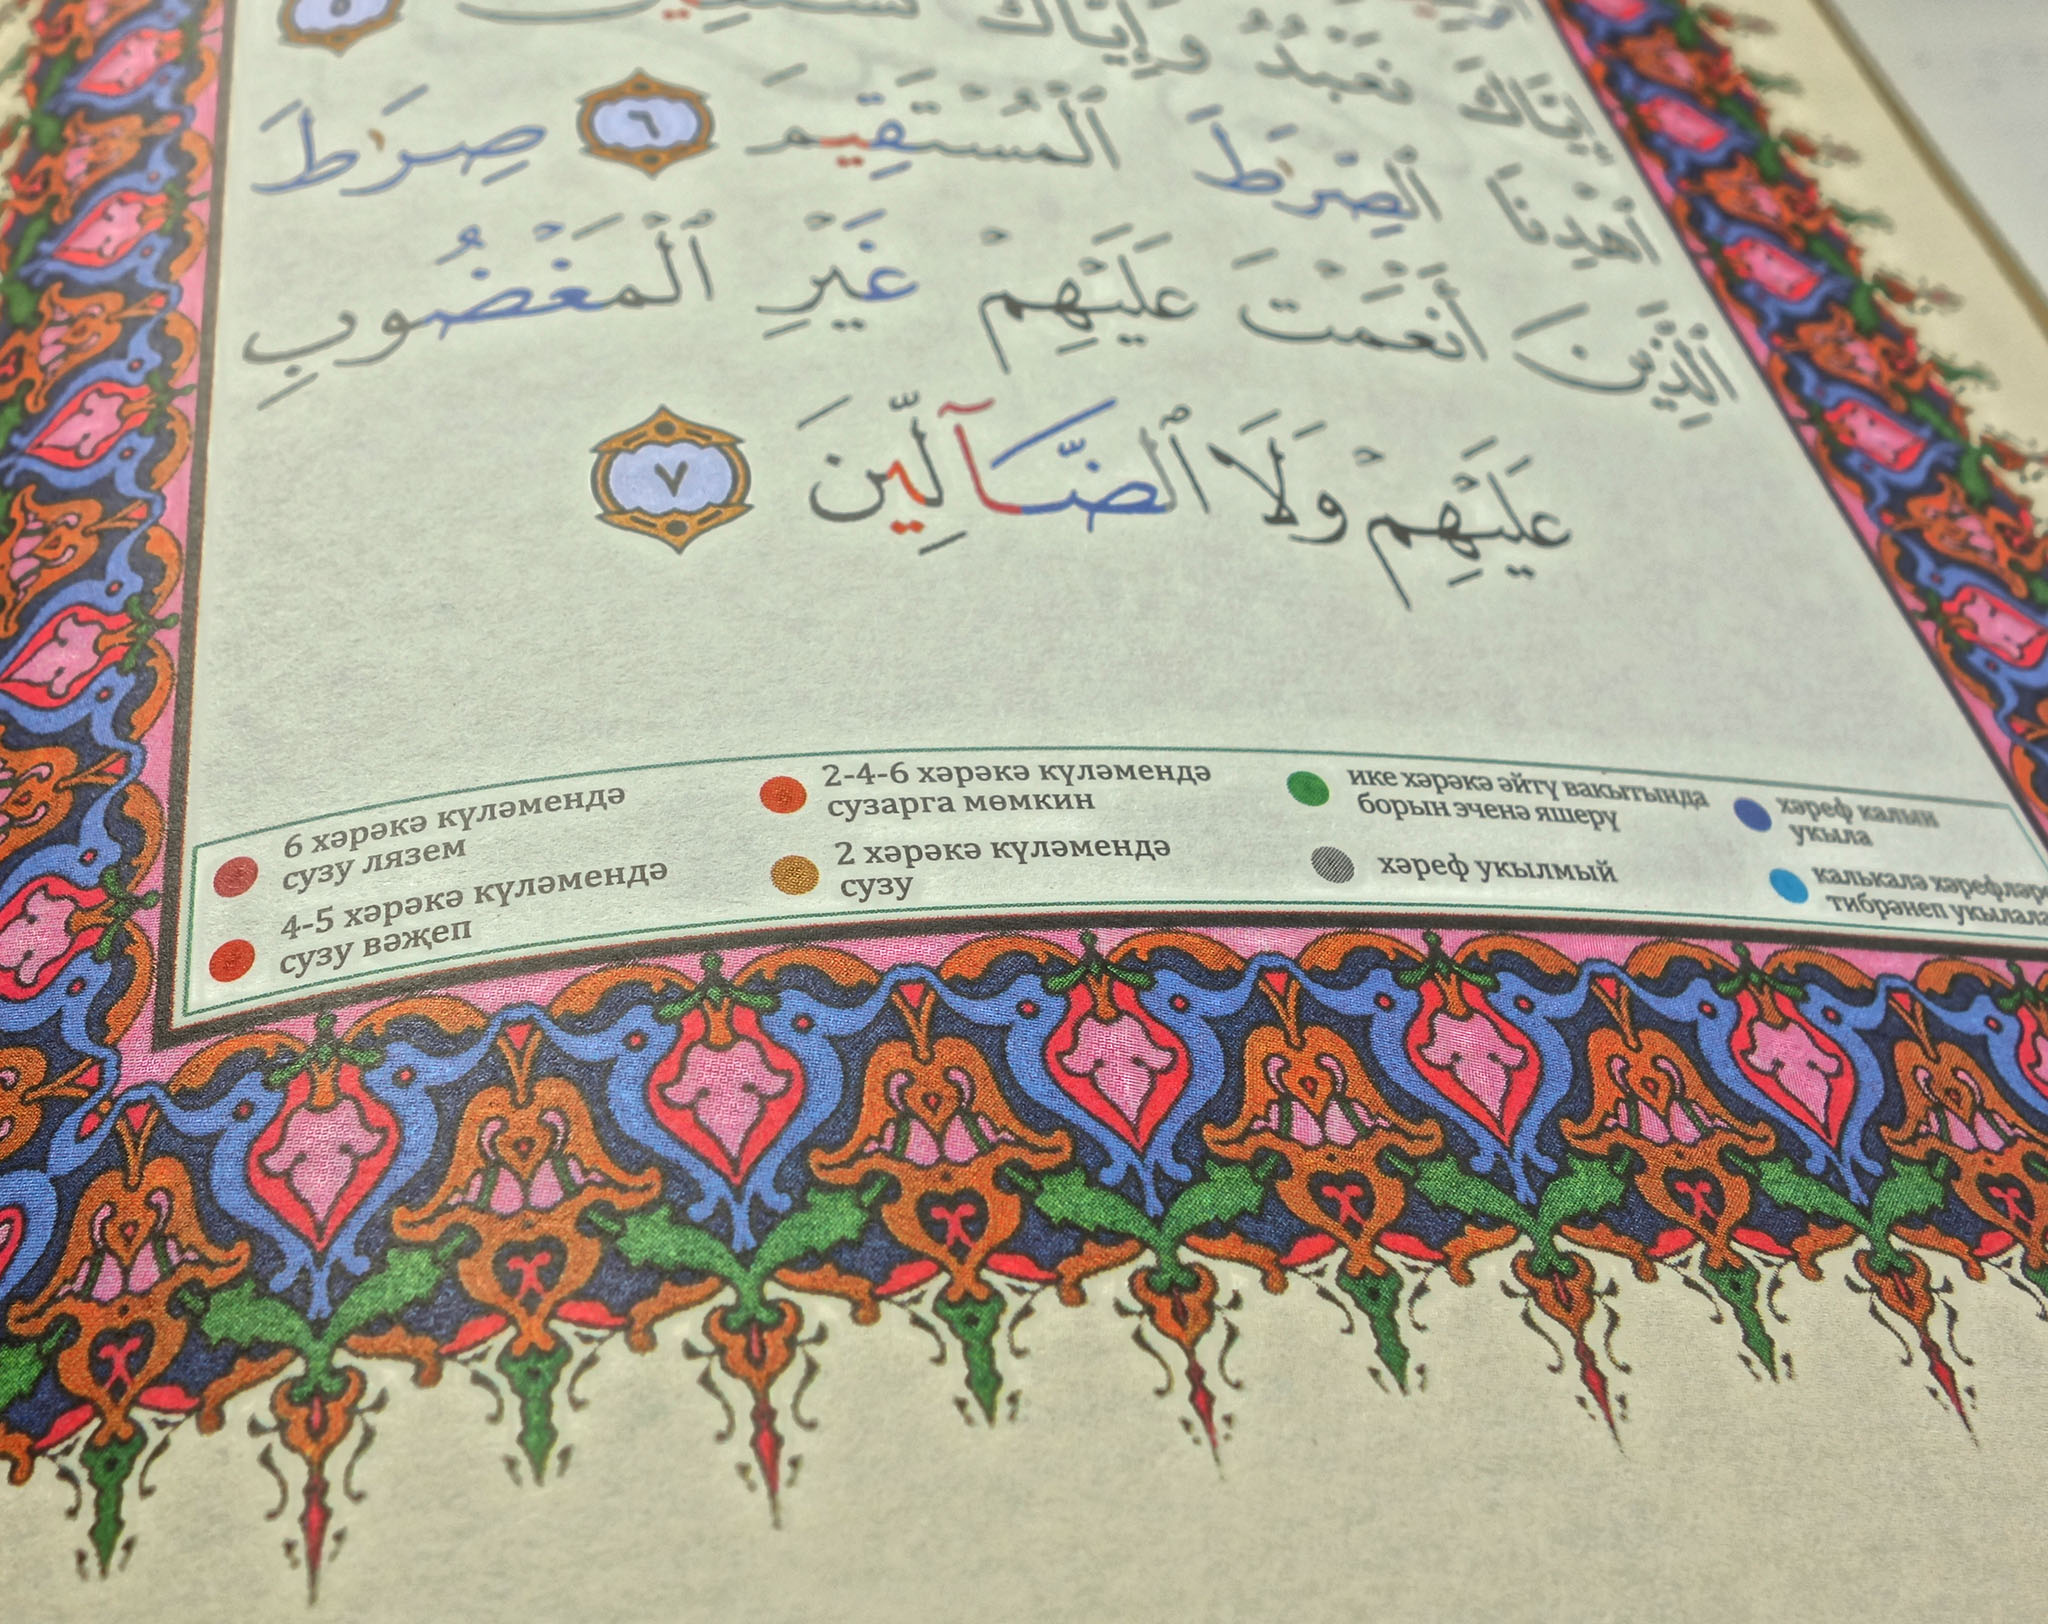 إِيَّاكَ نَعْبُدُ وَإِيَّاكَ نَسْتَعِينُ ٥
ٱهْدِنَا ٱلصِّرَٰطَ ٱلْمُسْتَقِيمَ ٦ صِرَٰطَ
ٱلَّذِينَ أَنْعَمْتَ عَلَيْهِمْ غَيْرِ ٱلْمَغْضُوبِ
عَلَيْهِمْ وَلَا ٱلضَّآلِّينَ ٧
6 хәрәкә күләмендә
сузу лязем
4-5 хәрәкә күләмендә
сузу вәҗеп
2-4-6 хәрәкә күләмендә
сузарга мөмкин
2 хәрәкә күләмендә
сузу
ике хәрәкә әйтү вакытында
борын эченә яшерү
хәреф укылмый
хәреф калын
укыла
калькалә хәрефләре
тибрәнеп укылала